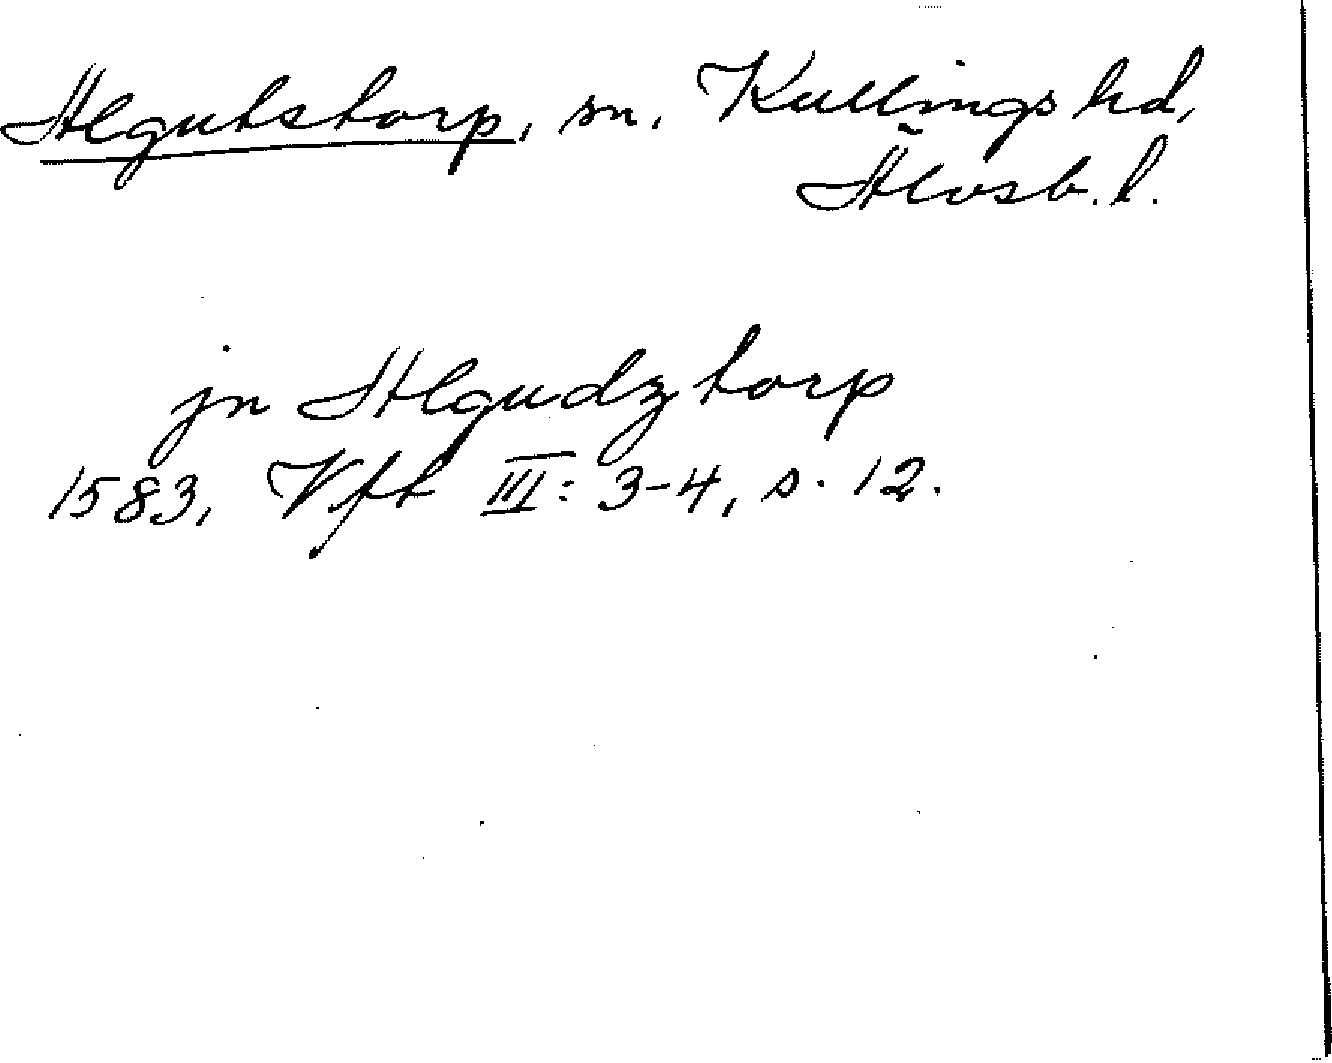 Algutstorp, sn. Kullings hd,
Älvsb. l.
jn Algudztorp
1583, Vft III: 3-4, s. 12.